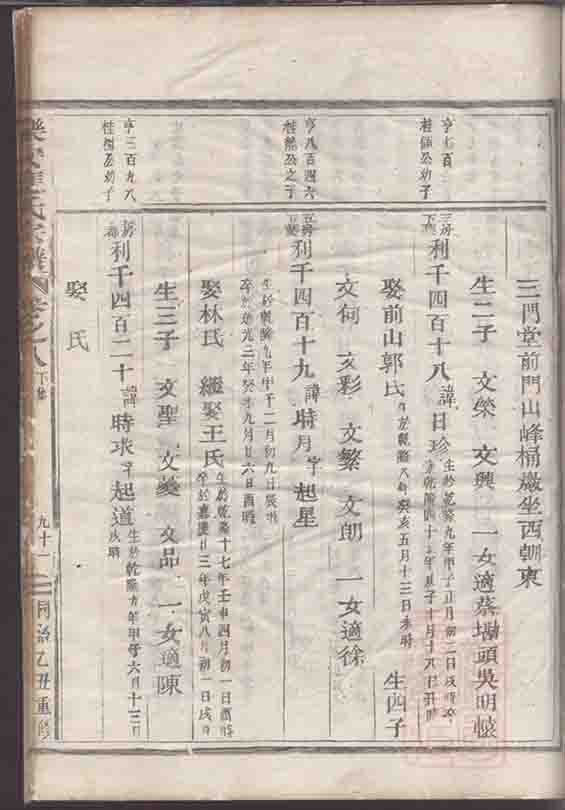 三門堂前門山峰桶巖坐西朝東
生二子 文榮 文興 一女適蔡墈頭吳明懷
亨七百
桂 公幼子
三房下 利千四百十八 諱日珍 生於乾隆九年甲子正月初二日戌時卒
於乾隆四十 年 子十月十六日丑時
娶前山郭氏 生於乾隆八年癸亥五月十三日未時 生四子
文甸 文彩 文繁 文朗 一女適徐
亨八百四六
桂熊公之子
五房 利千四百十九 諱時月 字起星
生於乾隆九年甲子二月初九日 時
卒於道光三年癸未九月廿六日酉時
娶林氏 繼娶王氏 生於乾隆十七年壬申四月初一日酉時
卒於嘉慶廿三年戊寅八月初一日戌時
生三子 文聖 文羲 文品 一女適陳
亨三百九八
桂樹公幼子
利千四百二十 諱時求 字起道 生於乾隆九年甲子六月十三日
戌時
娶 氏
氏宗譜 卷之八 下 九十一 同治乙丑重修